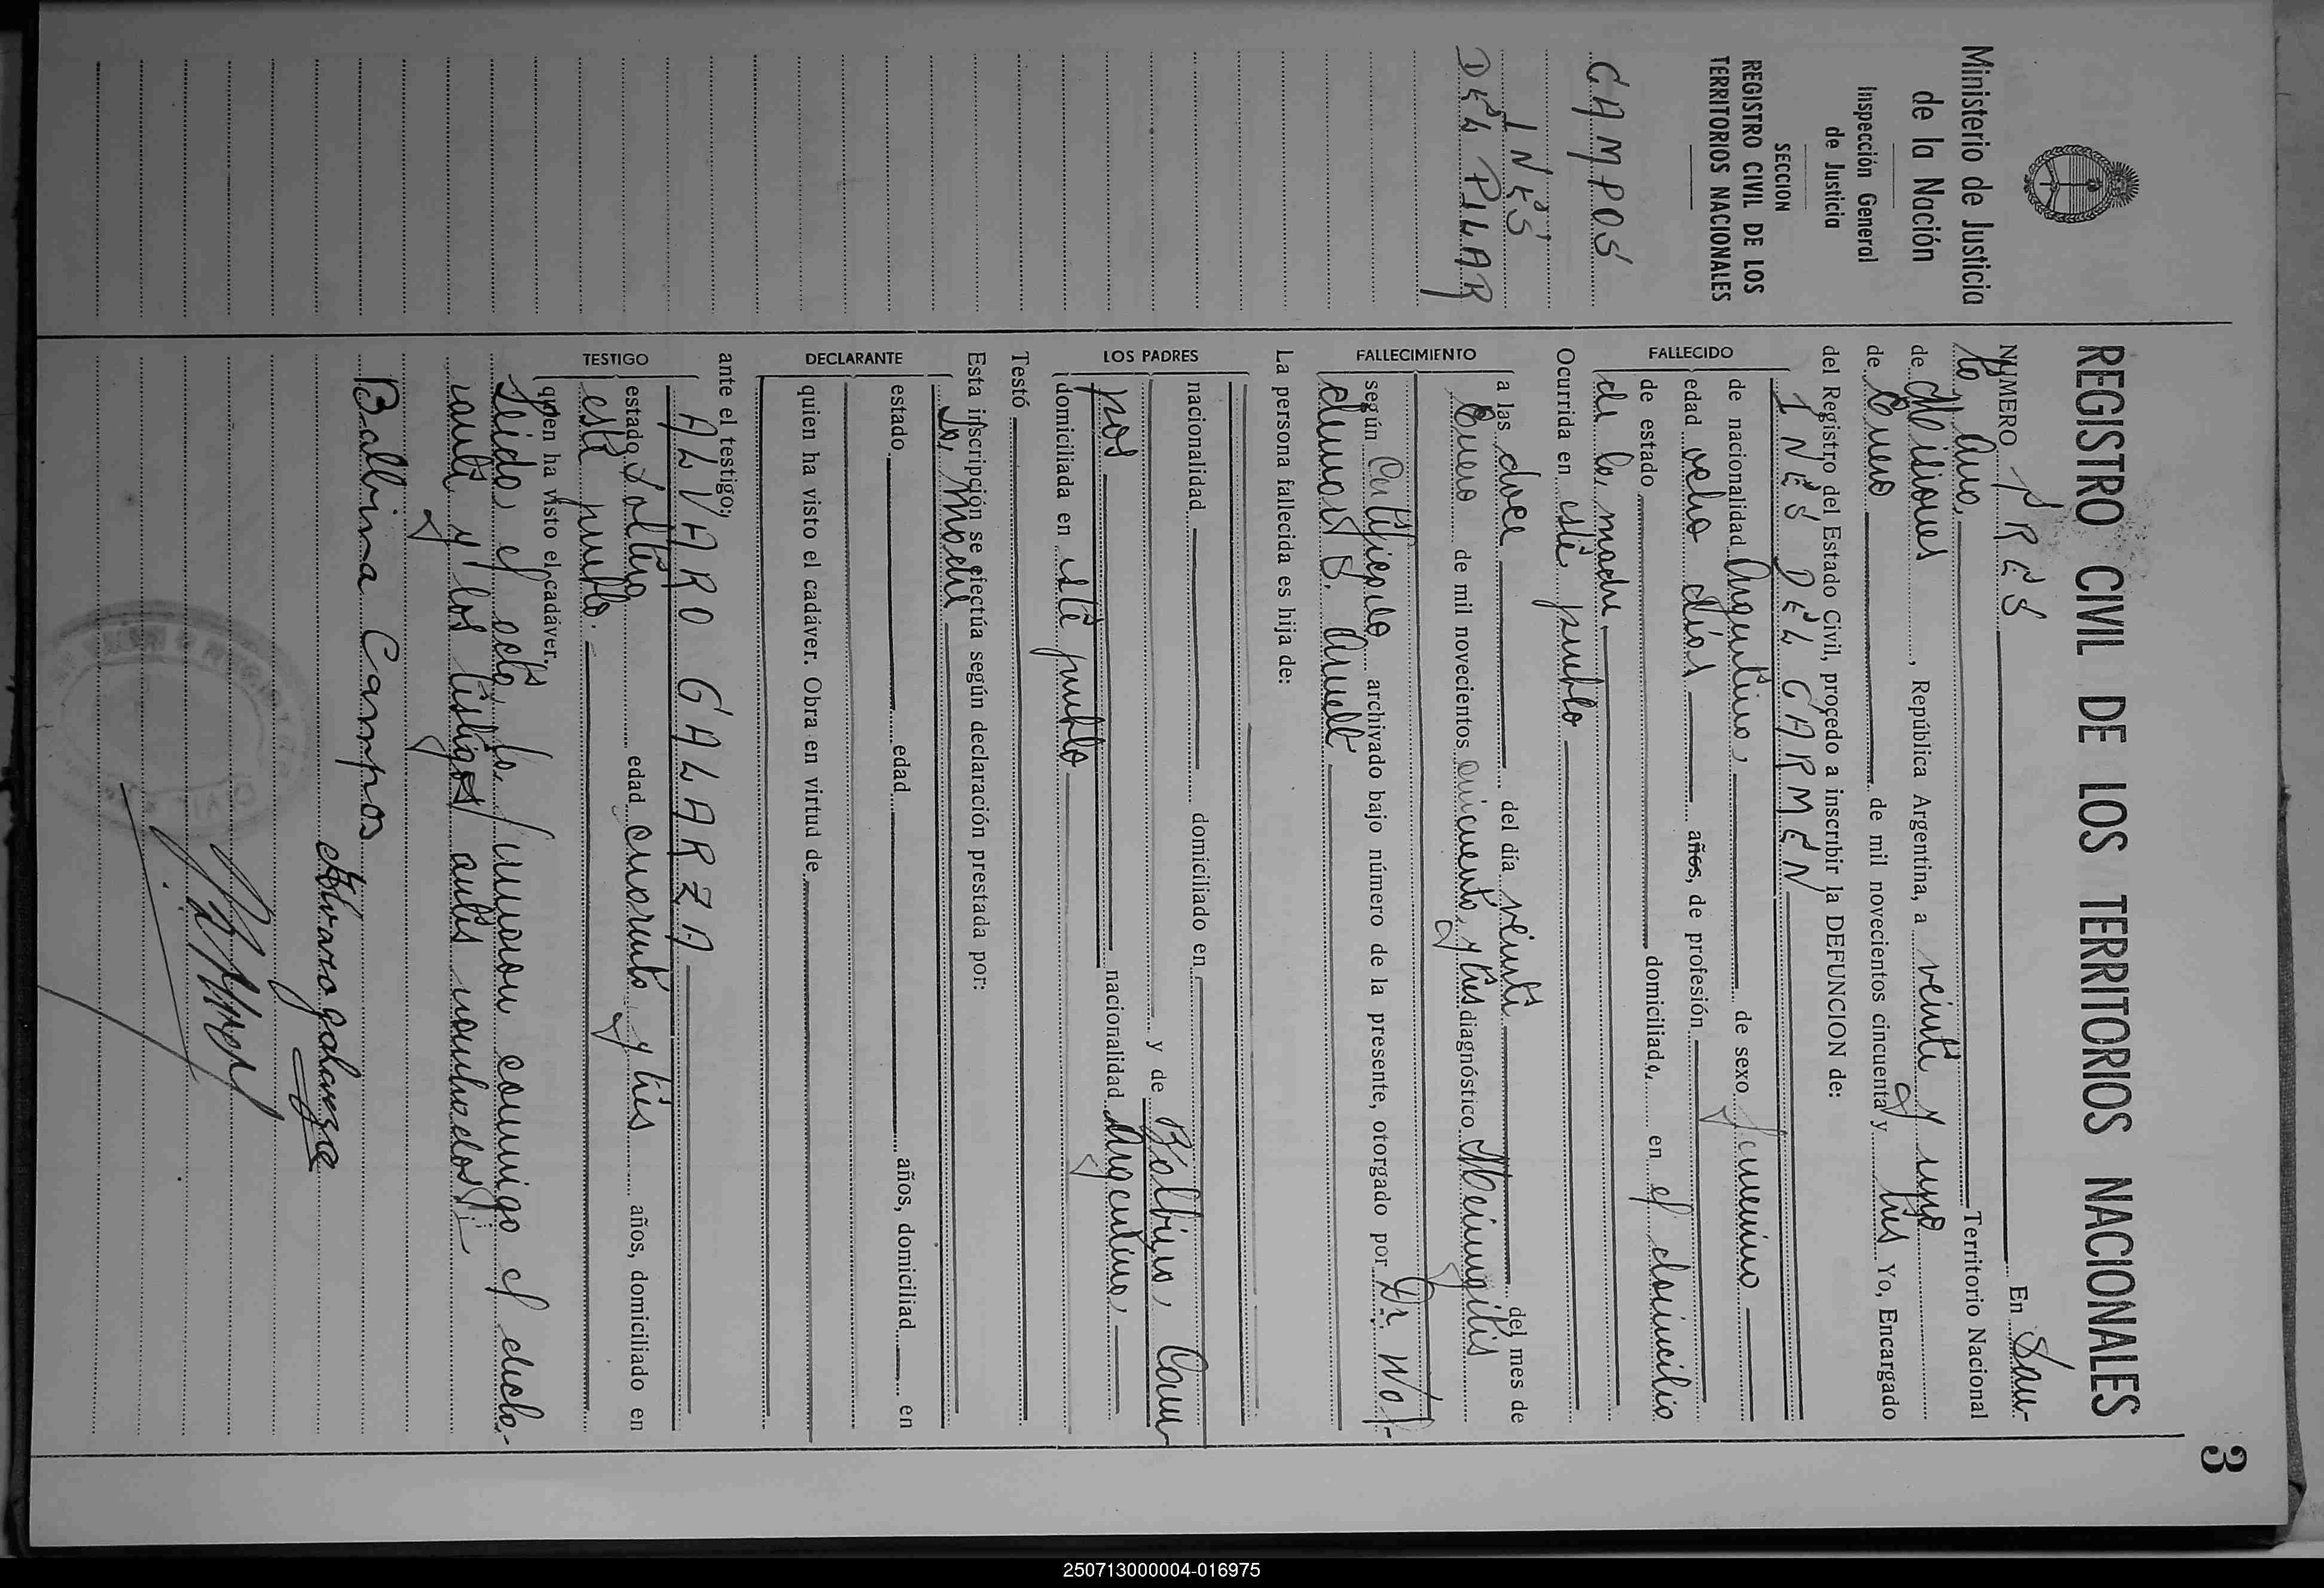 3
REGISTRO CIVIL DE LOS TERRITORIOS NACIONALES
Ministerio de Justicia
de la Nación
Inspección General
de Justicia
SECCION
REGISTRO CIVIL DE LOS
TERRITORIOS NACIONALES
CAMPOS
INÉS
DEL PILAR
NUMERO TRES En San-
ta Ana, Territorio Nacional
de Misiones, República Argentina, a veinte y uno
de Enero de mil novecientos cincuenta y tres Yo, Encargado
del Registro del Estado Civil, procedo a inscribir la DEFUNCION de:
FALLECIDO
INÉS DEL CARMEN
de nacionalidad Argentina, de sexo femenino
edad ocho días años, de profesión
de estado domiciliada en el domicilio
de la madre,
Ocurrida en este pueblo
FALLECIMIENTO
a las doce del día veinte del mes de
Enero de mil novecientos cincuenta y tres diagnóstico Meningitis
según Certificado archivado bajo número de la presente, otorgado por Dr. Wol-
demar B.
La persona fallecida es hija de:
LOS PADRES
nacionalidad domiciliado en
y de Balbina Cam
pos nacionalidad Argentina,
domiciliada en este pueblo
Testó
Esta inscripción se efectúa según declaración prestada por:
DECLARANTE
La madre
estado edad años, domiciliad en
quien ha visto el cadáver. Obra en virtud de
ante el testigo:
TESTIGO
ALVARO GALARZA
estado soltero edad cuarenta y tres años, domiciliado en
este pueblo.
quien ha visto el cadáver.
Leida el acta, la firmaron conmigo el decla-
rante y los testigos antes nombrados
Balbina Campos
Alvaro galarza
250713000004-016975